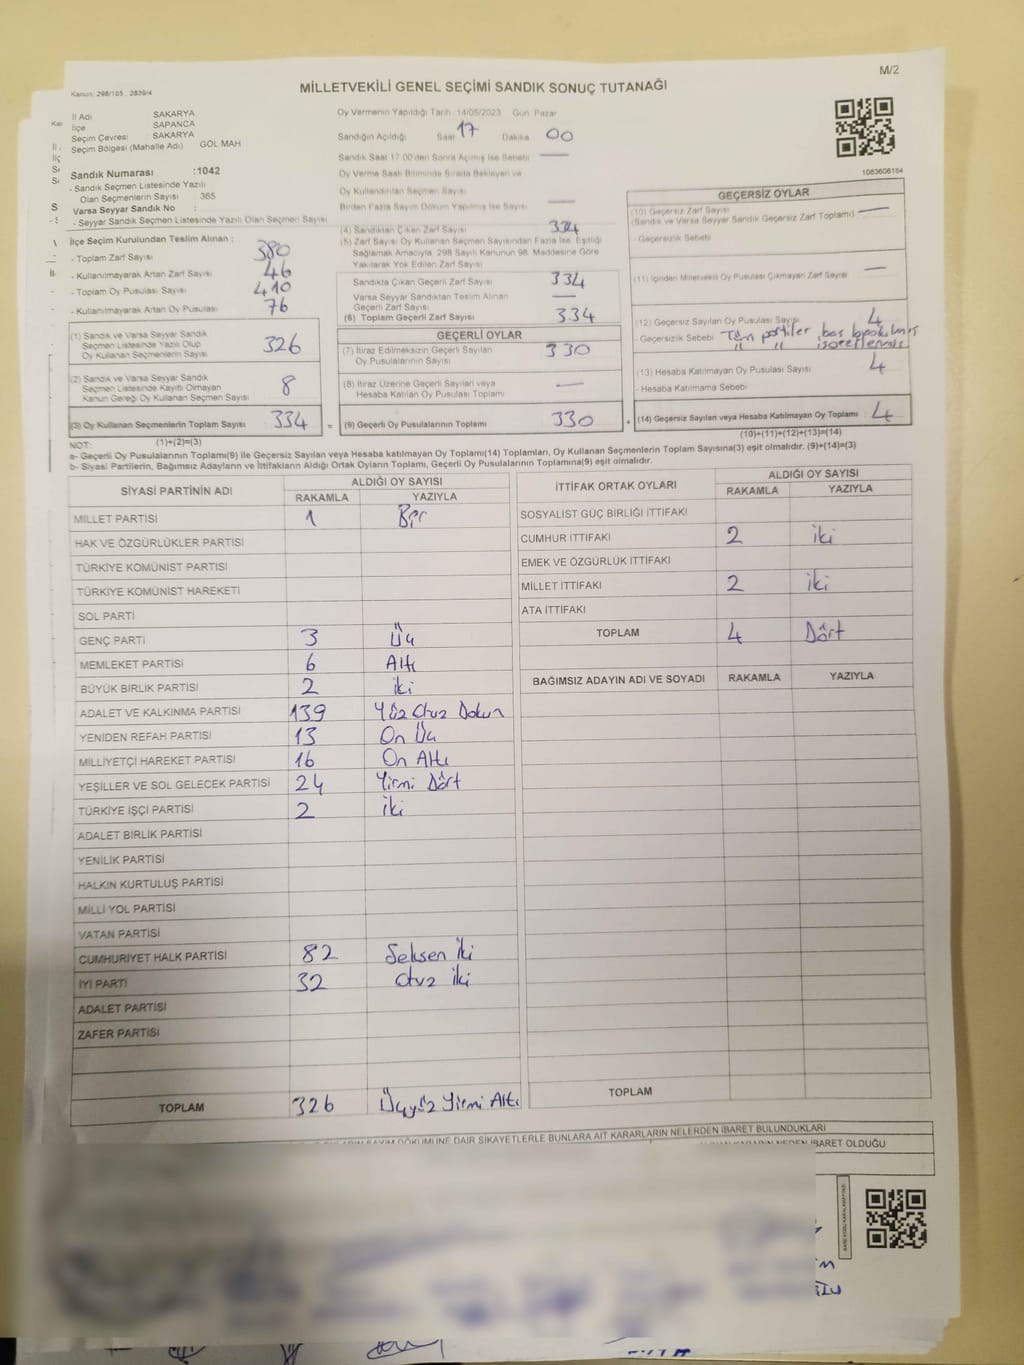 M/2
Kanun: 298/105 , 2839/4
MİLLETVEKİLİ GENEL SEÇİMİ SANDIK SONUÇ TUTANAĞI
İl Adı SAKARYA
İlçe SAPANCA
Seçim Çevresi SAKARYA
Seçim Bölgesi (Mahalle Adı) GÖL MAH.
Sandık Numarası :1042
- Sandık Seçmen Listesinde Yazılı
Olan Seçmenlerin Sayısı 365
Varsa Seyyar Sandık No :
- Seyyar Sandık Seçmen Listesinde Yazılı Olan Seçmen Sayısı
İlçe Seçim Kurulundan Teslim Alınan :
- Toplam Zarf Sayısı 380
- Kullanılmayarak Artan Zarf Sayısı 46
- Toplam Oy Pusulası Sayısı 410
- Kullanılmayarak Artan Oy Pusulası 76
(1) Sandık ve Varsa Seyyar Sandık
Seçmen Listesinde Yazılı Olup
Oy Kullanan Seçmenlerin Sayısı 326
(2) Sandık ve Varsa Seyyar Sandık
Seçmen Listesinde Kayıtlı Olmayan
Kanun Gereği Oy Kullanan Seçmen Sayısı 8
(3) Oy Kullanan Seçmenlerin Toplam Sayısı 334 =
Oy Vermenin Yapıldığı Tarih 14/05/2023 Gün Pazar
Sandığın Açıldığı Saat 17 Dakika 00
Sandık Saat 17.00'den Sonra Açılmış İse Sebebi —
Oy Verme Saati Bitiminde Sırada Bekleyen ve
Oy Kullandırılan Seçmen Sayısı
Birden Fazla Sayım Döküm Yapılmış İse Sayısı —
(4) Sandıktan Çıkan Zarf Sayısı 334
(5) Zarf Sayısı Oy Kullanan Seçmen Sayısından Fazla İse, Eşitliği
Sağlamak Amacıyla, 298 Sayılı Kanunun 98. Maddesine Göre
Yakılarak Yok Edilen Zarf Sayısı
Sandıkta Çıkan Geçerli Zarf Sayısı 334
Varsa Seyyar Sandıktan Teslim Alınan
Geçerli Zarf Sayısı —
(6) Toplam Geçerli Zarf Sayısı 334
GEÇERLİ OYLAR
(7) İtiraz Edilmeksizin Geçerli Sayılan
Oy Pusulasının Sayısı 330
(8) İtiraz Üzerine Geçerli Sayılan veya
Hesaba Katılan Oy Pusulası Toplamı —
(9) Geçerli Oy Pusulalarının Toplamı 330 +
1083608184
GEÇERSİZ OYLAR
(10) Geçersiz Zarf Sayısı —
(Sandık ve Varsa Seyyar Sandık Geçersiz Zarf Toplamı)
- Geçersizlik Sebebi
(11) İçinden Milletvekili Oy Pusulası Çıkmayan Zarf Sayısı —
(12) Geçersiz Sayılan Oy Pusulası Sayısı 4
- Geçersizlik Sebebi Tüm partiler boş bırakılmış
" " işaretlenmiş
(13) Hesaba Katılmayan Oy Pusulası Sayısı 4
- Hesaba Katılmama Sebebi
(14) Geçersiz Sayılan veya Hesaba Katılmayan Oy Toplamı 4
NOT: (1)+(2)=(3) (10)+(11)+(12)+(13)=(14)
a- Geçerli Oy Pusulalarının Toplamı(9) ile Geçersiz Sayılan veya Hesaba katılmayan Oy Toplamı(14) Toplamları, Oy Kullanan Seçmenlerin Toplam Sayısına(3) eşit olmalıdır. (9)+(14)=(3)
b- Siyasi Partilerin, Bağımsız Adayların ve İttifakların Aldığı Ortak Oyların Toplamı, Geçerli Oy Pusulalarının Toplamına(9) eşit olmalıdır.
SİYASİ PARTİNİN ADI ALDIĞI OY SAYISI
RAKAMLA YAZIYLA
MİLLET PARTİSİ 1 Bir
HAK VE ÖZGÜRLÜKLER PARTİSİ
TÜRKİYE KOMÜNİST PARTİSİ
TÜRKİYE KOMÜNİST HAREKETİ
SOL PARTİ
GENÇ PARTİ 3 Üç
MEMLEKET PARTİSİ 6 Altı
BÜYÜK BİRLİK PARTİSİ 2 iki
ADALET VE KALKINMA PARTİSİ 139 Yüz Otuz Dokuz
YENİDEN REFAH PARTİSİ 13 On Üç
MİLLİYETÇİ HAREKET PARTİSİ 16 On Altı
YEŞİLLER VE SOL GELECEK PARTİSİ 24 Yirmi Dört
TÜRKİYE İŞÇİ PARTİSİ 2 iki
ADALET BİRLİK PARTİSİ
YENİLİK PARTİSİ
HALKIN KURTULUŞ PARTİSİ
MİLLİ YOL PARTİSİ
VATAN PARTİSİ
CUMHURİYET HALK PARTİSİ 82 Seksen iki
İYİ PARTİ 32 Otuz iki
ADALET PARTİSİ
ZAFER PARTİSİ
TOPLAM 326 Üçyüz Yirmi Altı
İTTİFAK ORTAK OYLARI ALDIĞI OY SAYISI
RAKAMLA YAZIYLA
SOSYALİST GÜÇ BİRLİĞİ İTTİFAKI
CUMHUR İTTİFAKI 2 iki
EMEK VE ÖZGÜRLÜK İTTİFAKI
MİLLET İTTİFAKI 2 iki
ATA İTTİFAKI
TOPLAM 4 Dört
BAĞIMSIZ ADAYIN ADI VE SOYADI RAKAMLA YAZIYLA
TOPLAM
SAYIM DÖKÜMÜNE DAİR ŞİKAYETLERLE BUNLARA AİT KARARLARIN NELERDEN İBARET BULUNDUKLARI
KARARIN NEDEN İBARET OLDUĞU